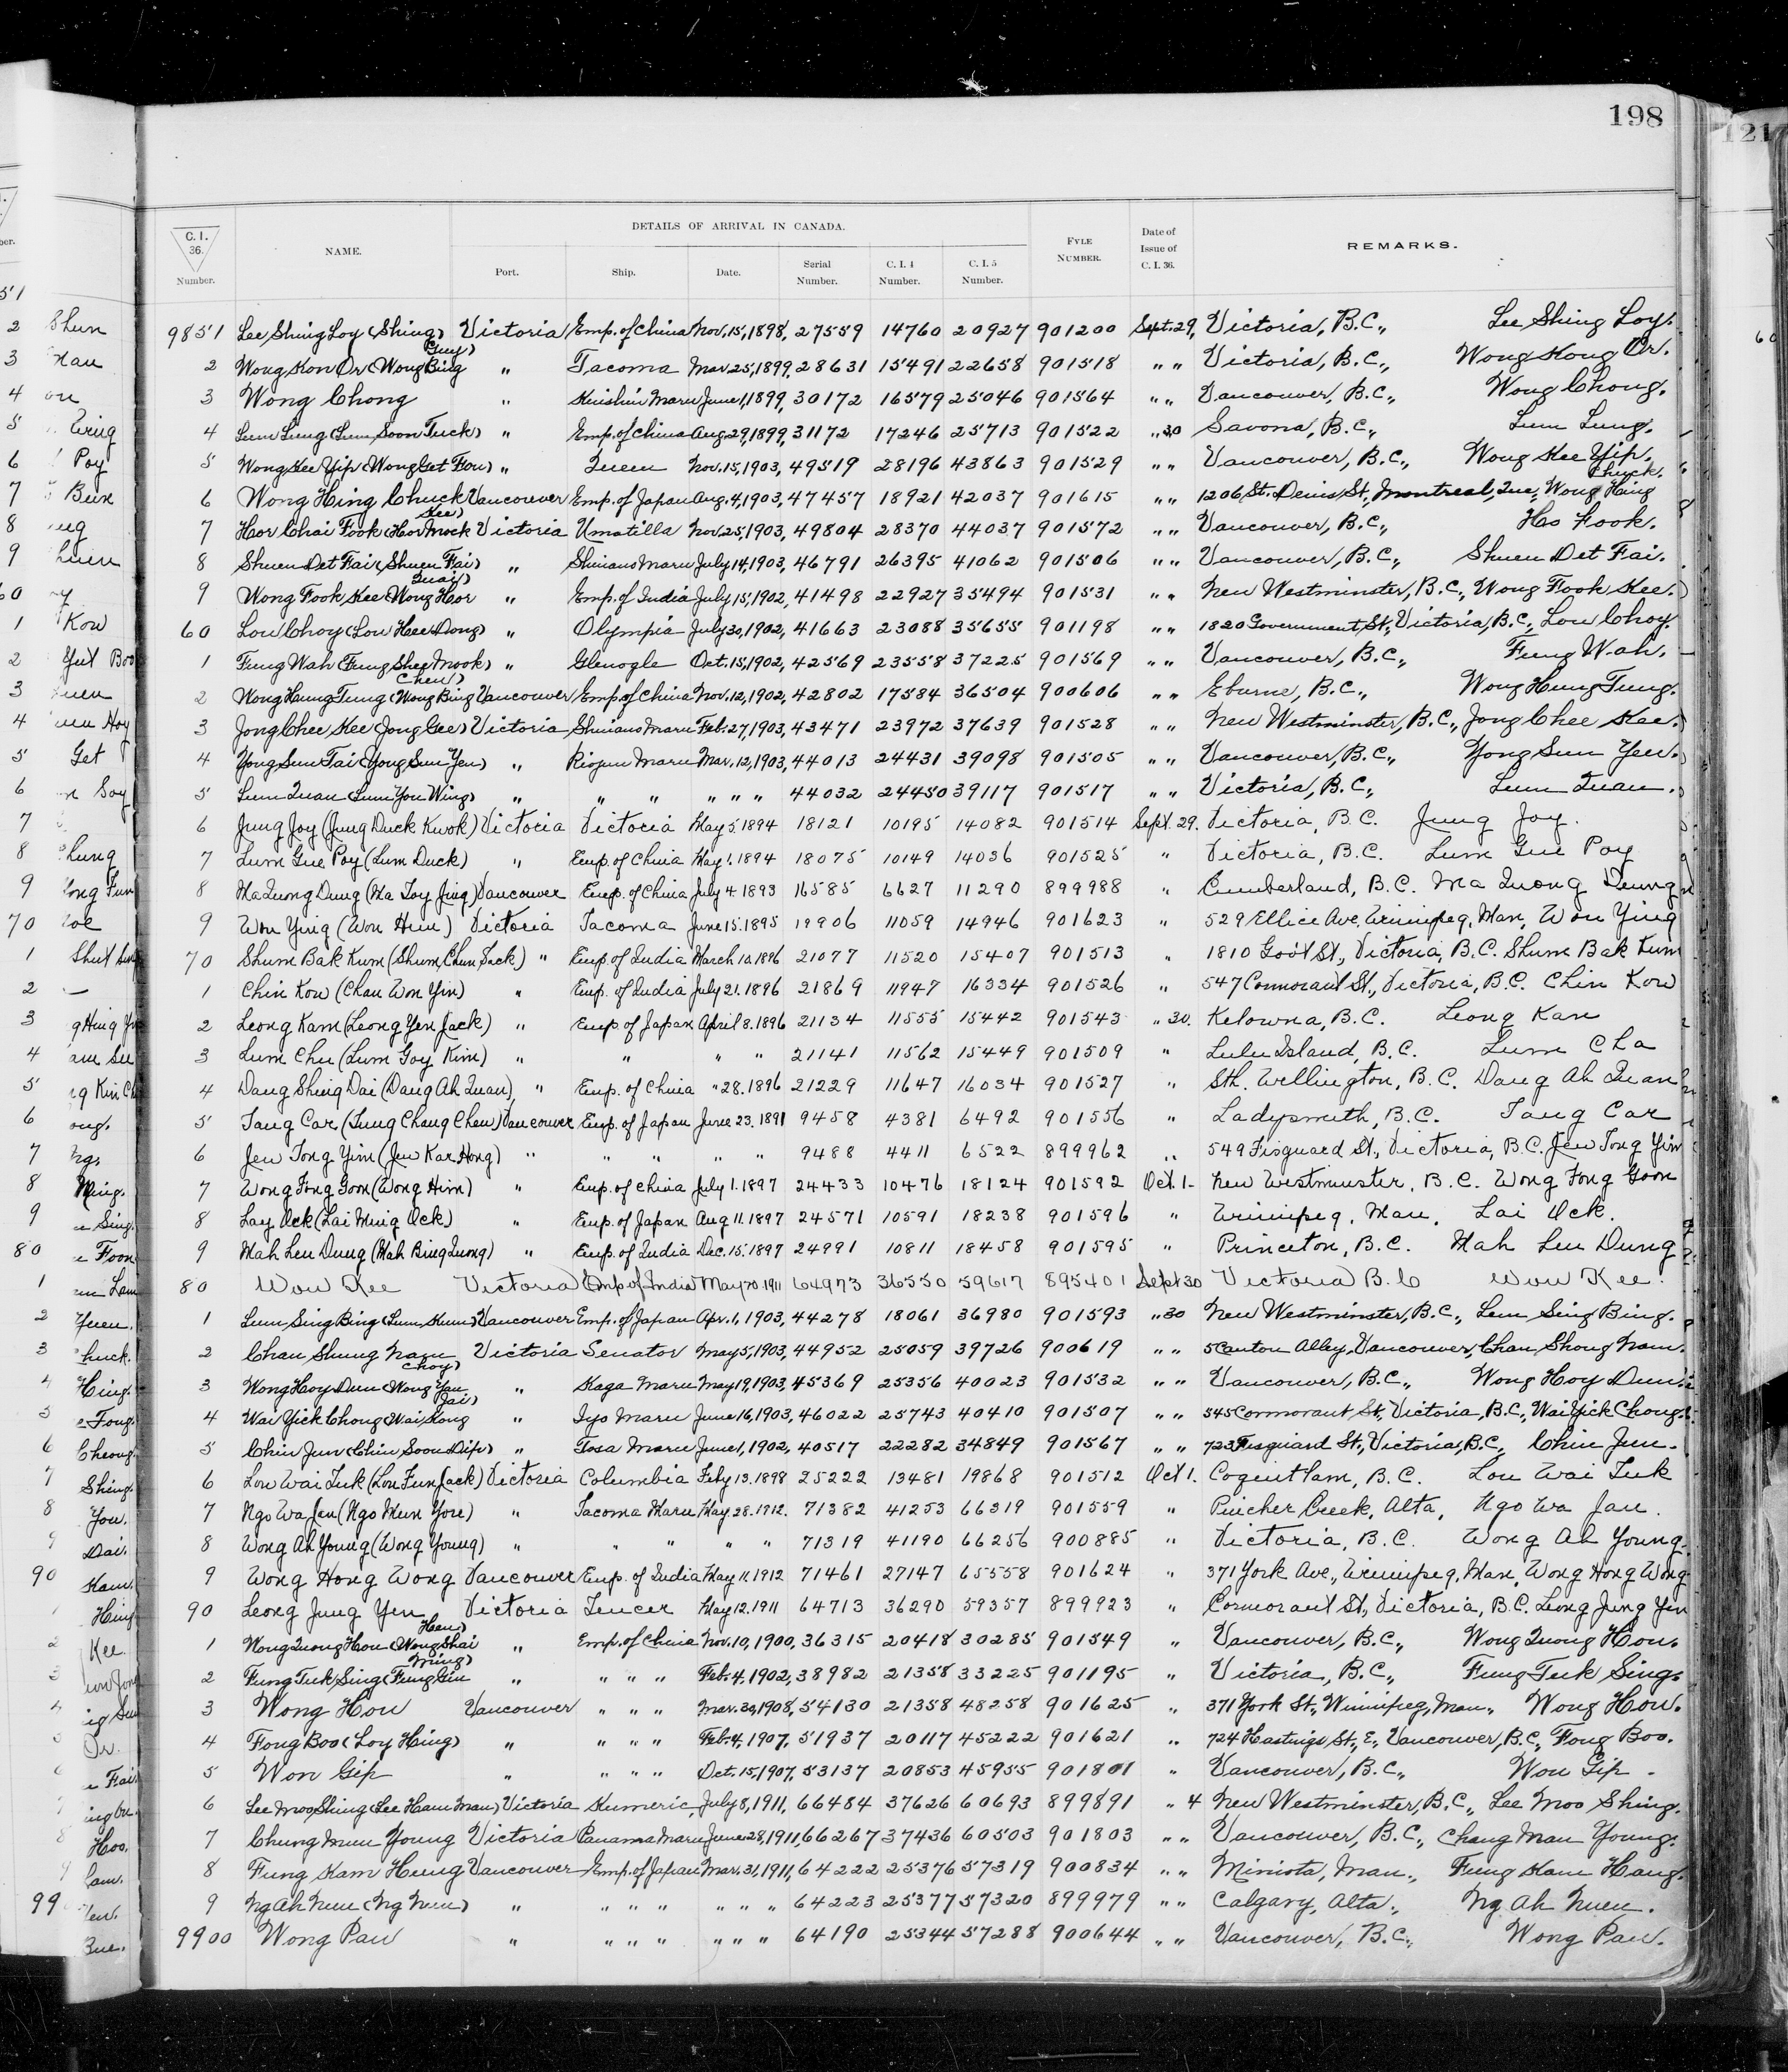 198
C. I. 36. Number. NAME. DETAILS OF ARRIVAL IN CANADA. Port. Ship. Date. Serial Number. C. I. 4 Number. C. I. 5 Number. FYLE NUMBER. Date of Issue of C. I. 36. REMARKS.
9851 Lee Shing Loy (Shing Guy) Victoria Emp. of China Nov. 15, 1898, 27559 14760 20927 901200 Sept. 29, Victoria, B.C., Lee Shing Loy.
2 Wong Kon Or (Wong Bing) " Tacoma Mar. 25, 1899, 28631 15491 22658 901518 " " Victoria, B.C., Wong Kong Or.
3 Wong Chong " Kinshiu Maru June 1, 1899, 30172 16579 25046 901564 " " Vancouver, B.C., Wong Chong.
4 Lum Lung (Lum Soon Tuck) " Emp. of China Aug. 29, 1899, 31172 17246 25713 901522 " 30 Savona, B.C., Lum Lung.
5 Wong Kee Yip (Wong Get Fow) " Queen Nov. 15, 1903, 49519 28196 43863 901529 " " Vancouver, B.C., Wong Kee Yip.
6 Wong Hing Chuck Vancouver Emp. of Japan Aug. 4, 1903, 47457 18921 42037 901615 " " 1206 St. Denis St., Montreal, Que., Wong Hing Chuck.
7 Hor Chai Fook (Hor Mock Kee) Victoria Umatilla Nov. 25, 1903, 49804 28370 44037 901572 " " Vancouver, B.C., Ho Fook.
8 Shuen Det Fai (Shuen Fai) " Shinano Maru July 14, 1903, 46791 26395 41062 901506 " " Vancouver, B.C., Shuen Det Fai.
9 Wong Fook Kee (Wong Hor Quai) " Emp. of India July 15, 1902, 41498 22927 35494 901531 " " New Westminster, B.C., Wong Fook Kee.
60 Lou Choy (Lou Hee Dong) " Olympia July 30, 1902, 41663 23088 35655 901198 " " 1820 Government St., Victoria, B.C., Lou Choy.
1 Fung Wah (Fung Shee Mook) " Glenogle Oct. 15, 1902, 42569 23558 37225 901569 " " Vancouver, B.C., Fung Wah.
2 Wong Hung Tung (Wong Bing Chew) Vancouver Emp. of China Nov. 12, 1902, 42802 17584 36504 900606 " " Eburne, B.C., Wong Hung Tung.
3 Jong Chee Kee (Jong Gee) Victoria Shinano Maru Feb. 27, 1903, 43471 23972 37639 901528 " " New Westminster, B.C., Jong Chee Kee.
4 Yong Sun Tai (Yong Sun Yen) " Riojun Maru Mar. 12, 1903, 44013 24431 39098 901505 " " Vancouver, B.C., Yong Sun Yen.
5 Lum Quan (Lum You Wing) " " " " " " 44032 24450 39117 901517 " " Victoria, B.C., Lum Quan.
6 Jung Joy (Jung Duck Kwok) Victoria Victoria May 5. 1894 18121 10195 14082 901514 Sept. 29. Victoria, B.C. Jung Joy.
7 Lum Gue Poy (Lum Duck) " Emp. of China May 1. 1894 18075 10149 14036 901525 " Victoria, B.C. Lum Gue Poy
8 Ma Quong Dung (Ma Toy Jing) Vancouver Emp. of China July 4. 1893 16585 6627 11290 899988 " Cumberland, B.C. Ma Quong Deung
9 Won Ying (Won Him) Victoria Tacoma June 15. 1895 19906 11059 14946 901623 " 529 Ellice Ave. Winnipeg, Man, Won Ying
70 Shum Bak Kum (Shum Chun Jack) " Emp. of India March 10. 1896 21077 11520 15407 901513 " 1810 Gov't St., Victoria, B.C. Shum Bak Kum
1 Chin Kow (Chan Won Yin) " Emp. of India July 21. 1896 21869 11947 16334 901526 " 547 Cormorant St., Victoria, B.C. Chin Kow
2 Leong Kam (Leong Yen Jack) " Emp. of Japan April 8. 1896 21134 11555 15442 901543 " 30. Kelowna, B.C. Leong Kan
3 Lum Chu (Lum Goy Kim) " " " " 21141 11562 15449 901509 " Lulu Island, B.C. Lum Cha
4 Dang Shing Dai (Dang Ah Quan) " Emp. of China " 28. 1896 21229 11647 16034 901527 " Sth. Wellington, B.C. Dang Ah Quan
5 Tang Car (Tung Chang Chew) Vancouver Emp. of Japan June 23. 1891 9458 4381 6492 901556 " Ladysmith, B.C. Tang Car
6 Jew Tong Yim (Jew Kar Hong) " " " " " 9488 4411 6522 899962 " 549 Fisguard St., Victoria, B.C. Jew Tong Yim
7 Wong Fong Goon (Wong Him) " Emp. of China July 1. 1897 24433 10476 18124 901592 Oct. 1. New Westminster, B.C. Wong Fong Goon
8 Lay Ock (Lai Ming Ock) " Emp. of Japan Aug 11. 1897 24571 10591 18238 901596 " Winnipeg, Man. Lai Ock.
9 Mah Len Dung (Mah Bing Quong) " Emp. of India Dec. 15. 1897 24991 10811 18458 901595 " Princeton, B.C. Mah Len Dung
80 Wow Kee Victoria Emp of India May 20. 1911 64973 36550 59617 895401 Sept 30 Victoria B.C Wow Kee.
1 Lum Sing Bing (Lum Kum) Vancouver Emp. of Japan Apr. 1, 1903, 44278 18061 36980 901593 " 30 New Westminster, B.C., Lem Sing Bing.
2 Chan Shung Nam Victoria Senator May 5, 1903, 44952 25059 39726 900619 " " 5 Canton Alley, Vancouver, Chan Shong Nam.
3 Wong Hoy Dun (Wong Yan Choy) " Kaga Maru May 19, 1903, 45369 25356 40023 901532 " " Vancouver, B.C., Wong Hoy Dun.
4 Wai Yick Chong (Wai Kong Jai) " Iyo Maru June 16, 1903, 46022 25743 40410 901507 " " 545 Cormorant St., Victoria, B.C., Wai Yick Chong.
5 Chin Jun (Chin Soon Dip) " Tosa Maru June 1, 1902, 40517 22282 34849 901567 " " 723 Fisguard St., Victoria, B.C., Chin Jun.
6 Lou Wai Tuk (Lou Fun Jack) Victoria Columbia Feby 13. 1898 25222 13481 19868 901512 Oct 1. Coquitlam, B.C. Lou Wai Tuk
7 Ngo Wa Jan (Ngo Mun You) " Tacoma Maru May. 28. 1912. 71382 41253 66319 901559 " Pincher Creek, Alta, Ngo Wa Jan.
8 Wong Ah Young (Wong Young) " " " " " 71319 41190 66256 900885 " Victoria, B.C. Wong Ah Young.
9 Wong Hong Wong Vancouver Emp. of India May 11. 1912 71461 27147 65558 901624 " 371 York Ave., Winnipeg, Man, Wong Hong Wong
90 Leong Jung Yen Victoria Teucer May 12. 1911 64713 36290 59357 899923 " Cormorant St., Victoria, B.C. Leong Jung Yen
1 Wong Quong Hou (Wong Shai Hen) " Emp. of China Nov. 10, 1900, 36315 20418 30285 901549 " Vancouver, B.C., Wong Quong Hou.
2 Fung Tuk Sing (Fung Gin Ming) " " " " Feb. 4, 1902, 38982 21358 33225 901195 " Victoria, B.C., Fung Tuk Sing.
3 Wong Hou Vancouver " " " Mar. 30, 1908, 54130 21358 48258 901625 " 371 York St., Winnipeg, Man., Wong Hou.
4 Fong Boo (Loy Hing) " " " " Feb. 4, 1907, 51937 20117 45222 901621 " 724 Hastings St., E., Vancouver, B.C., Fong Boo.
5 Won Gip " " " " Oct. 15, 1907, 53137 20853 45955 901801 " Vancouver, B.C., Won Gip.
6 Lee Moo Shing (Lee Ham Man) Victoria Kumeric July 8, 1911, 66484 37626 60693 899891 " 4 New Westminster, B.C., Lee Moo Shing.
7 Chung Mun Young Victoria Panama Maru June 28, 1911, 66267 37436 60503 901803 " " Vancouver, B.C., Chang Man Young.
8 Fung Kam Hung Vancouver Emp. of Japan Mar. 31, 1911, 64222 25376 57319 900834 " " Miniota, Man., Fung Kam Hang.
9 Ng Ah Nuen (Ng Nuen) " " " " " " " 64223 25377 57320 899979 " " Calgary, Alta., Ng Ah Nuen.
9900 Wong Pau " " " " " " " 64190 25344 57288 900644 " " Vancouver, B.C., Wong Pau.